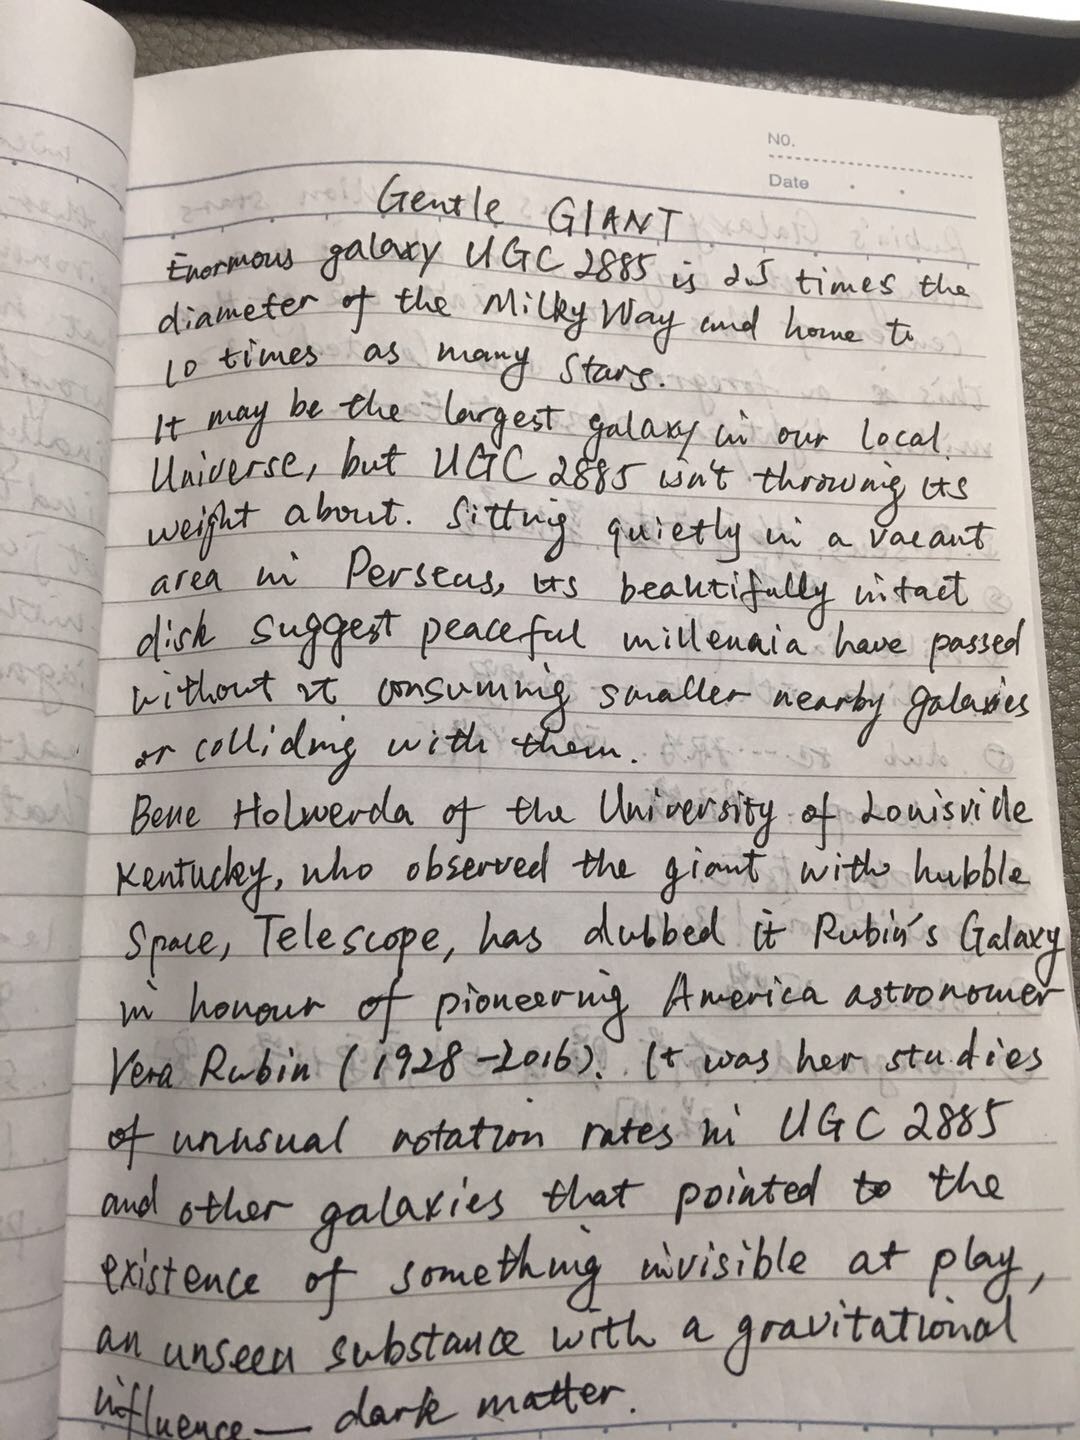 NO.
Date
Gentle GIANT
Enormous galaxy UGC 2885 is 2.5 times the
diameter of the Milky Way and home to
10 times as many stars.
It may be the largest galaxy in our local
Universe, but UGC 2885 isn't throwing its
weight about. Sitting quietly in a vacant
area in Perseus, its beautifully intact
disk suggest peaceful millennia have passed
without it consuming smaller nearby galaxies
or colliding with them.
Bene Holwerda of the University of Louisville
Kentucky, who observed the giant with hubble
Space, Telescope, has dubbed it Rubin's Galaxy
in honour of pioneering America astronomer
Vera Rubin (1928-2016). It was her studies
of unusual rotation rates in UGC 2885
and other galaxies that pointed to the
existence of something invisible at play,
an unseen substance with a gravitational
influence — dark matter.